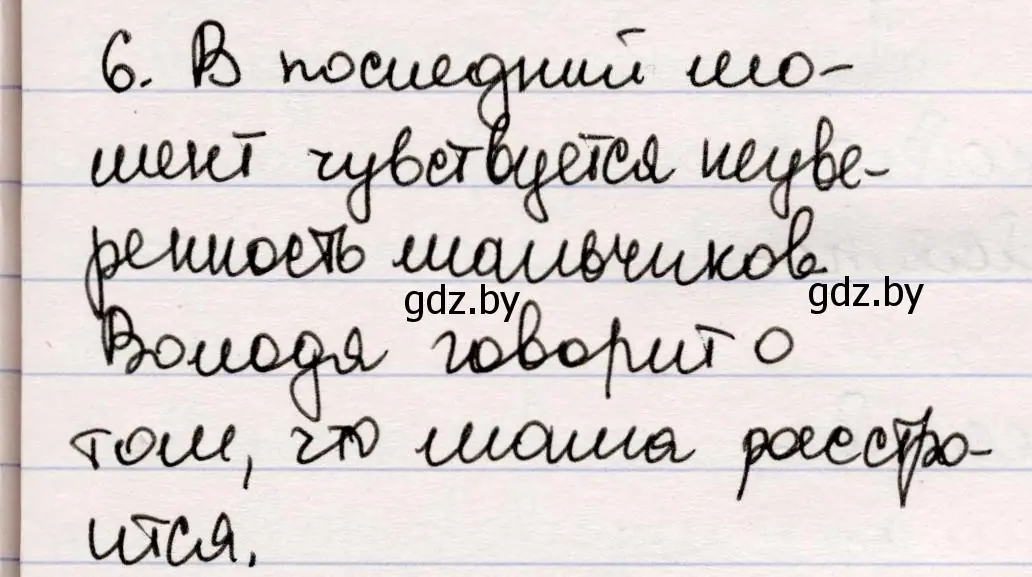 6. В последний мо-
мент чувствуется неуве-
ренность мальчиков.
gdz.by gdz.by
Володя говорит о
том, что мама расстро-
ится.